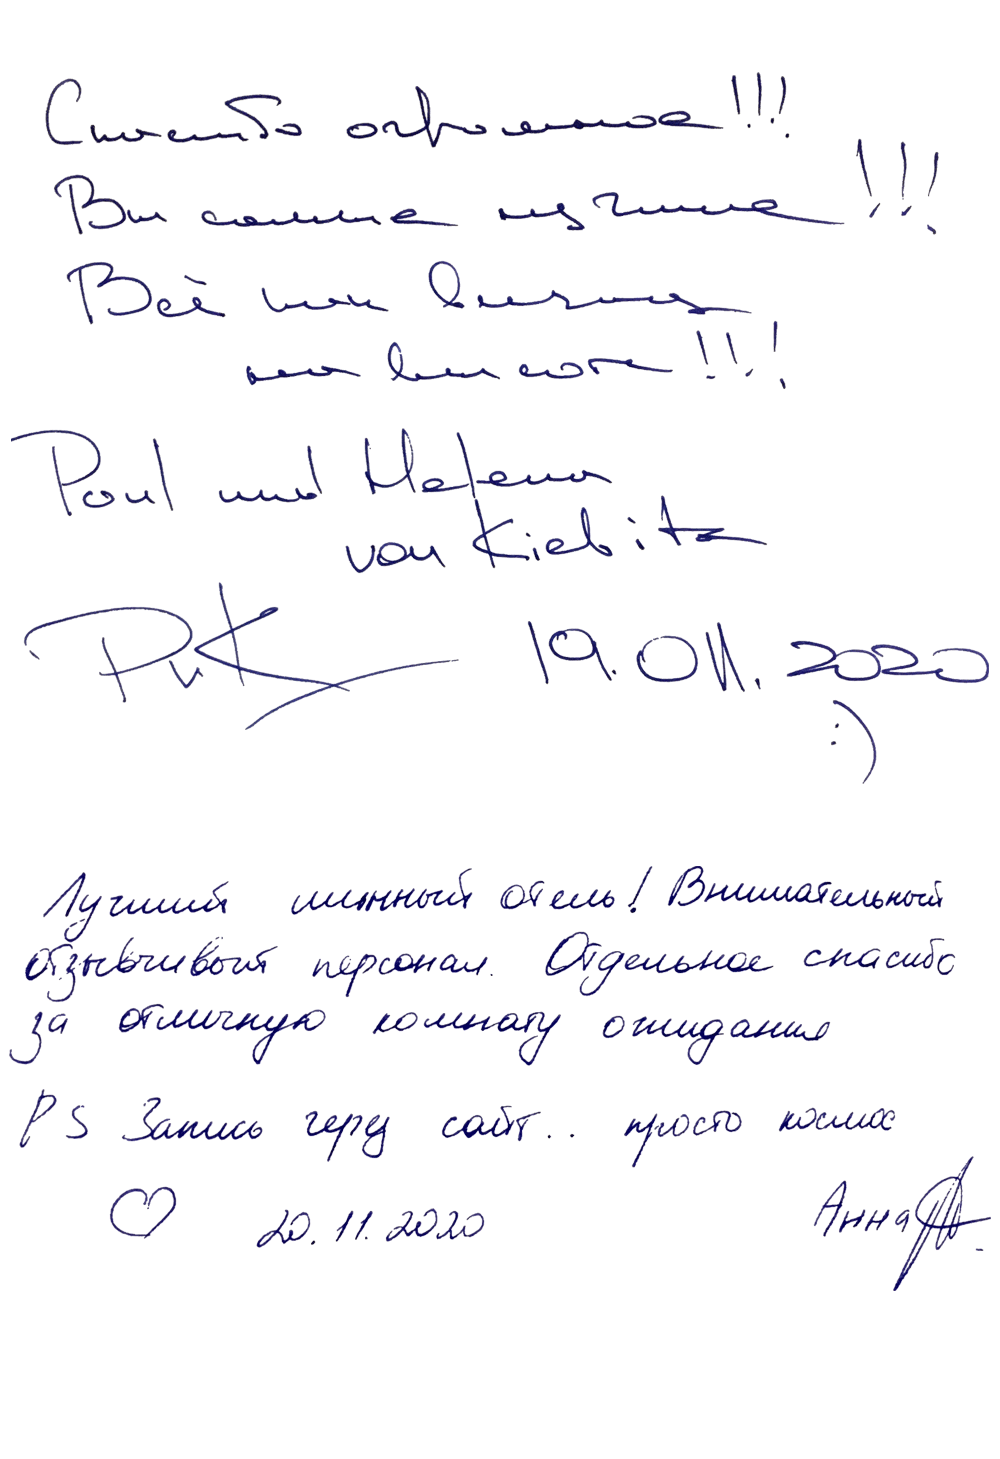 Спасибо огромное!!!
Вы самые лучшие!!!
Всё как всегда
на высоте!!!
Paul und Helena
von Kiebitz
19.011.2020
:)
Лучший минный отель! Внимательный
отзывчивый персонал. Отдельное спасибо
за отличную комнату ожидания
PS Запись через сайт.. просто космос
♡ 20.11.2020 Анна